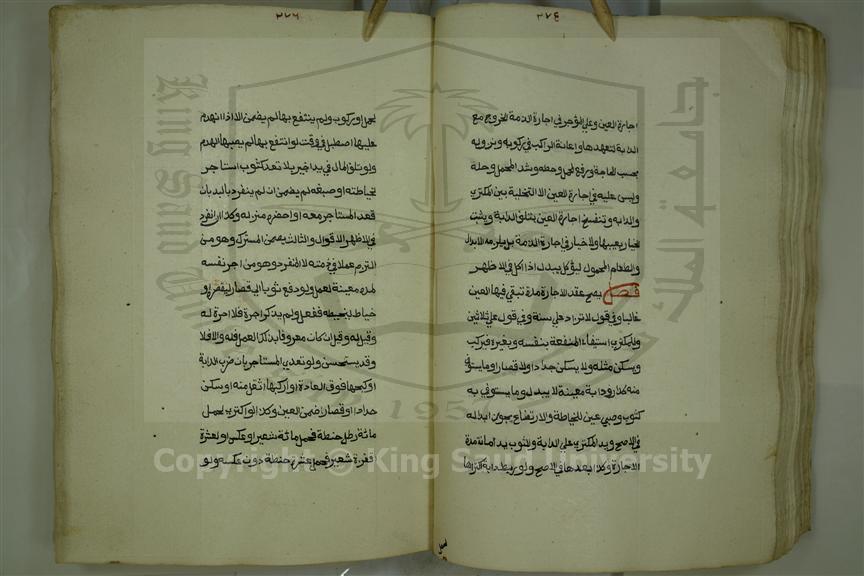 ٢٧٤
اجارة العين وعلى المؤجر في اجارة الذمة الخروج مع
الدابة لتعهدها واعانة الراكب في ركوبه ونزوله
بحسب الحاجة ورفع الحمل وحطه وشد المحمل وحله
وليس عليه في اجارة العين الا التخلية بين المكتري
والدابة وتنفسخ اجارة العين بتلف الدابة ويثبت
الخيار بعيبها ولا خيار في اجارة الذمة بل يلزمه الابدال
والطعام المحمول ليؤكل يبدل اذا اكل في الاظهر
فصل يصح عقد الاجارة مدة تبقى فيها العين
غالبا وفي قول لا تزاد على سنة وفي قول على ثلاثين
وللمكتري استيفاء المنفعة بنفسه وبغيره فيركب
ويسكن مثله ولا يسكن حدادا ولا قصارا وما يستوفى
منه كدار ودابة معينة لا يبدل وما يستوفى به
كثوب وصبي عين للخياطة والارتضاع يجوز ابداله
في الاصح ويد المكتري على الدابة والثوب يد امانة مدة
الاجارة وكذا بعدها في الاصح ولو ربط دابة اكتراها
٢٧٦
لحمل او ركوب ولم ينتفع بها لم يضمن الا اذا انهدم
عليها اصطبل في وقت لو انتفع بها لم يصبها الهدم
ولو تلف المال في يد اجير بلا تعد كثوب استاجر
لخياطته او صبغه لم يضمن ان لم ينفرد باليد بان
قعد المستاجر معه او احضره منزله وكذا ان انفرد
في الاظهر الاقوال والثالث يضمن المشترك وهو من
التزم عملا في ذمته لا المنفرد وهو من اجر نفسه
مدة معينة لعمل ولو دفع ثوبا الى قصار ليقصره او
خياط ليخيطه ففعل ولم يذكر اجرة فلا اجرة له
وقيل له وقيل ان كان معروفا بذلك العمل فله والا فلا
وقد يستحسن ولو تعدى المستاجر بان ضرب الدابة
او كبحها فوق العادة او اركبها اثقل منه او سكن
حدادا او قصارا ضمن العين وكذا لو اكترى لحمل
مائة رطل حنطة فحمل مائة شعيرا او عكس او لعشرة
اقفزة شعير فحمل عشرة حنطة دون عكسه ولو
King Saud University
جامعة الملك سعود
1957
Copyright © King Saud University